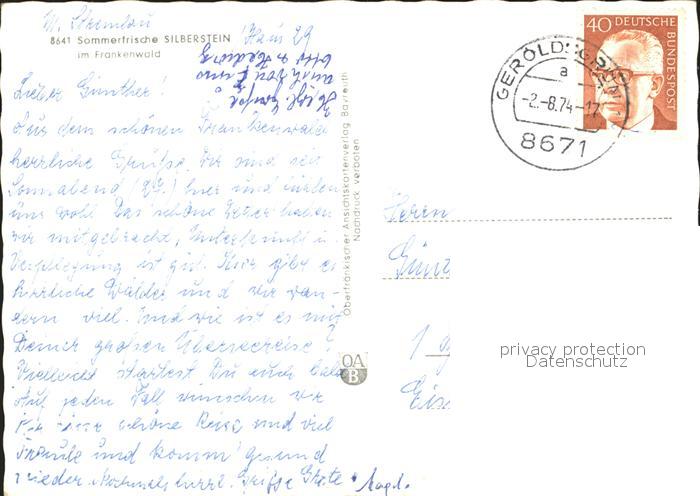 8641 Sommerfrische SILBERSTEIN
im Frankenwald
Haus 29
Herzl. Grüße
auch von Enno
Lieber Günther!
Aus dem schönen Frankenwald
herrliche Grüße. Wir sind seit
Sonnabend hier und fühlen
uns wohl. Das schöne Wetter haben
wir mitgebracht, Unterkunft u.
Verpflegung ist gut. Hier gibt es
herrliche Wälder und wir wan-
dern viel. Und wie ist es mit
Deiner großen Überseereise?
Vielleicht startest Du auch bald
Auf jeden Fall wünschen wir
Dir eine schöne Reise und viel
Freude und komm' gesund
wieder. Nochmals herzl. Grüße Grete
Oberfränkischer Ansichtskartenverlag Bayreuth
Nachdruck verboten
OA
B
40 DEUTSCHE BUNDESPOST
GEROLDSGRÜN
a
-2.-8.74-17
8671
Herrn
Günt
1
privacy protection
Datenschutz